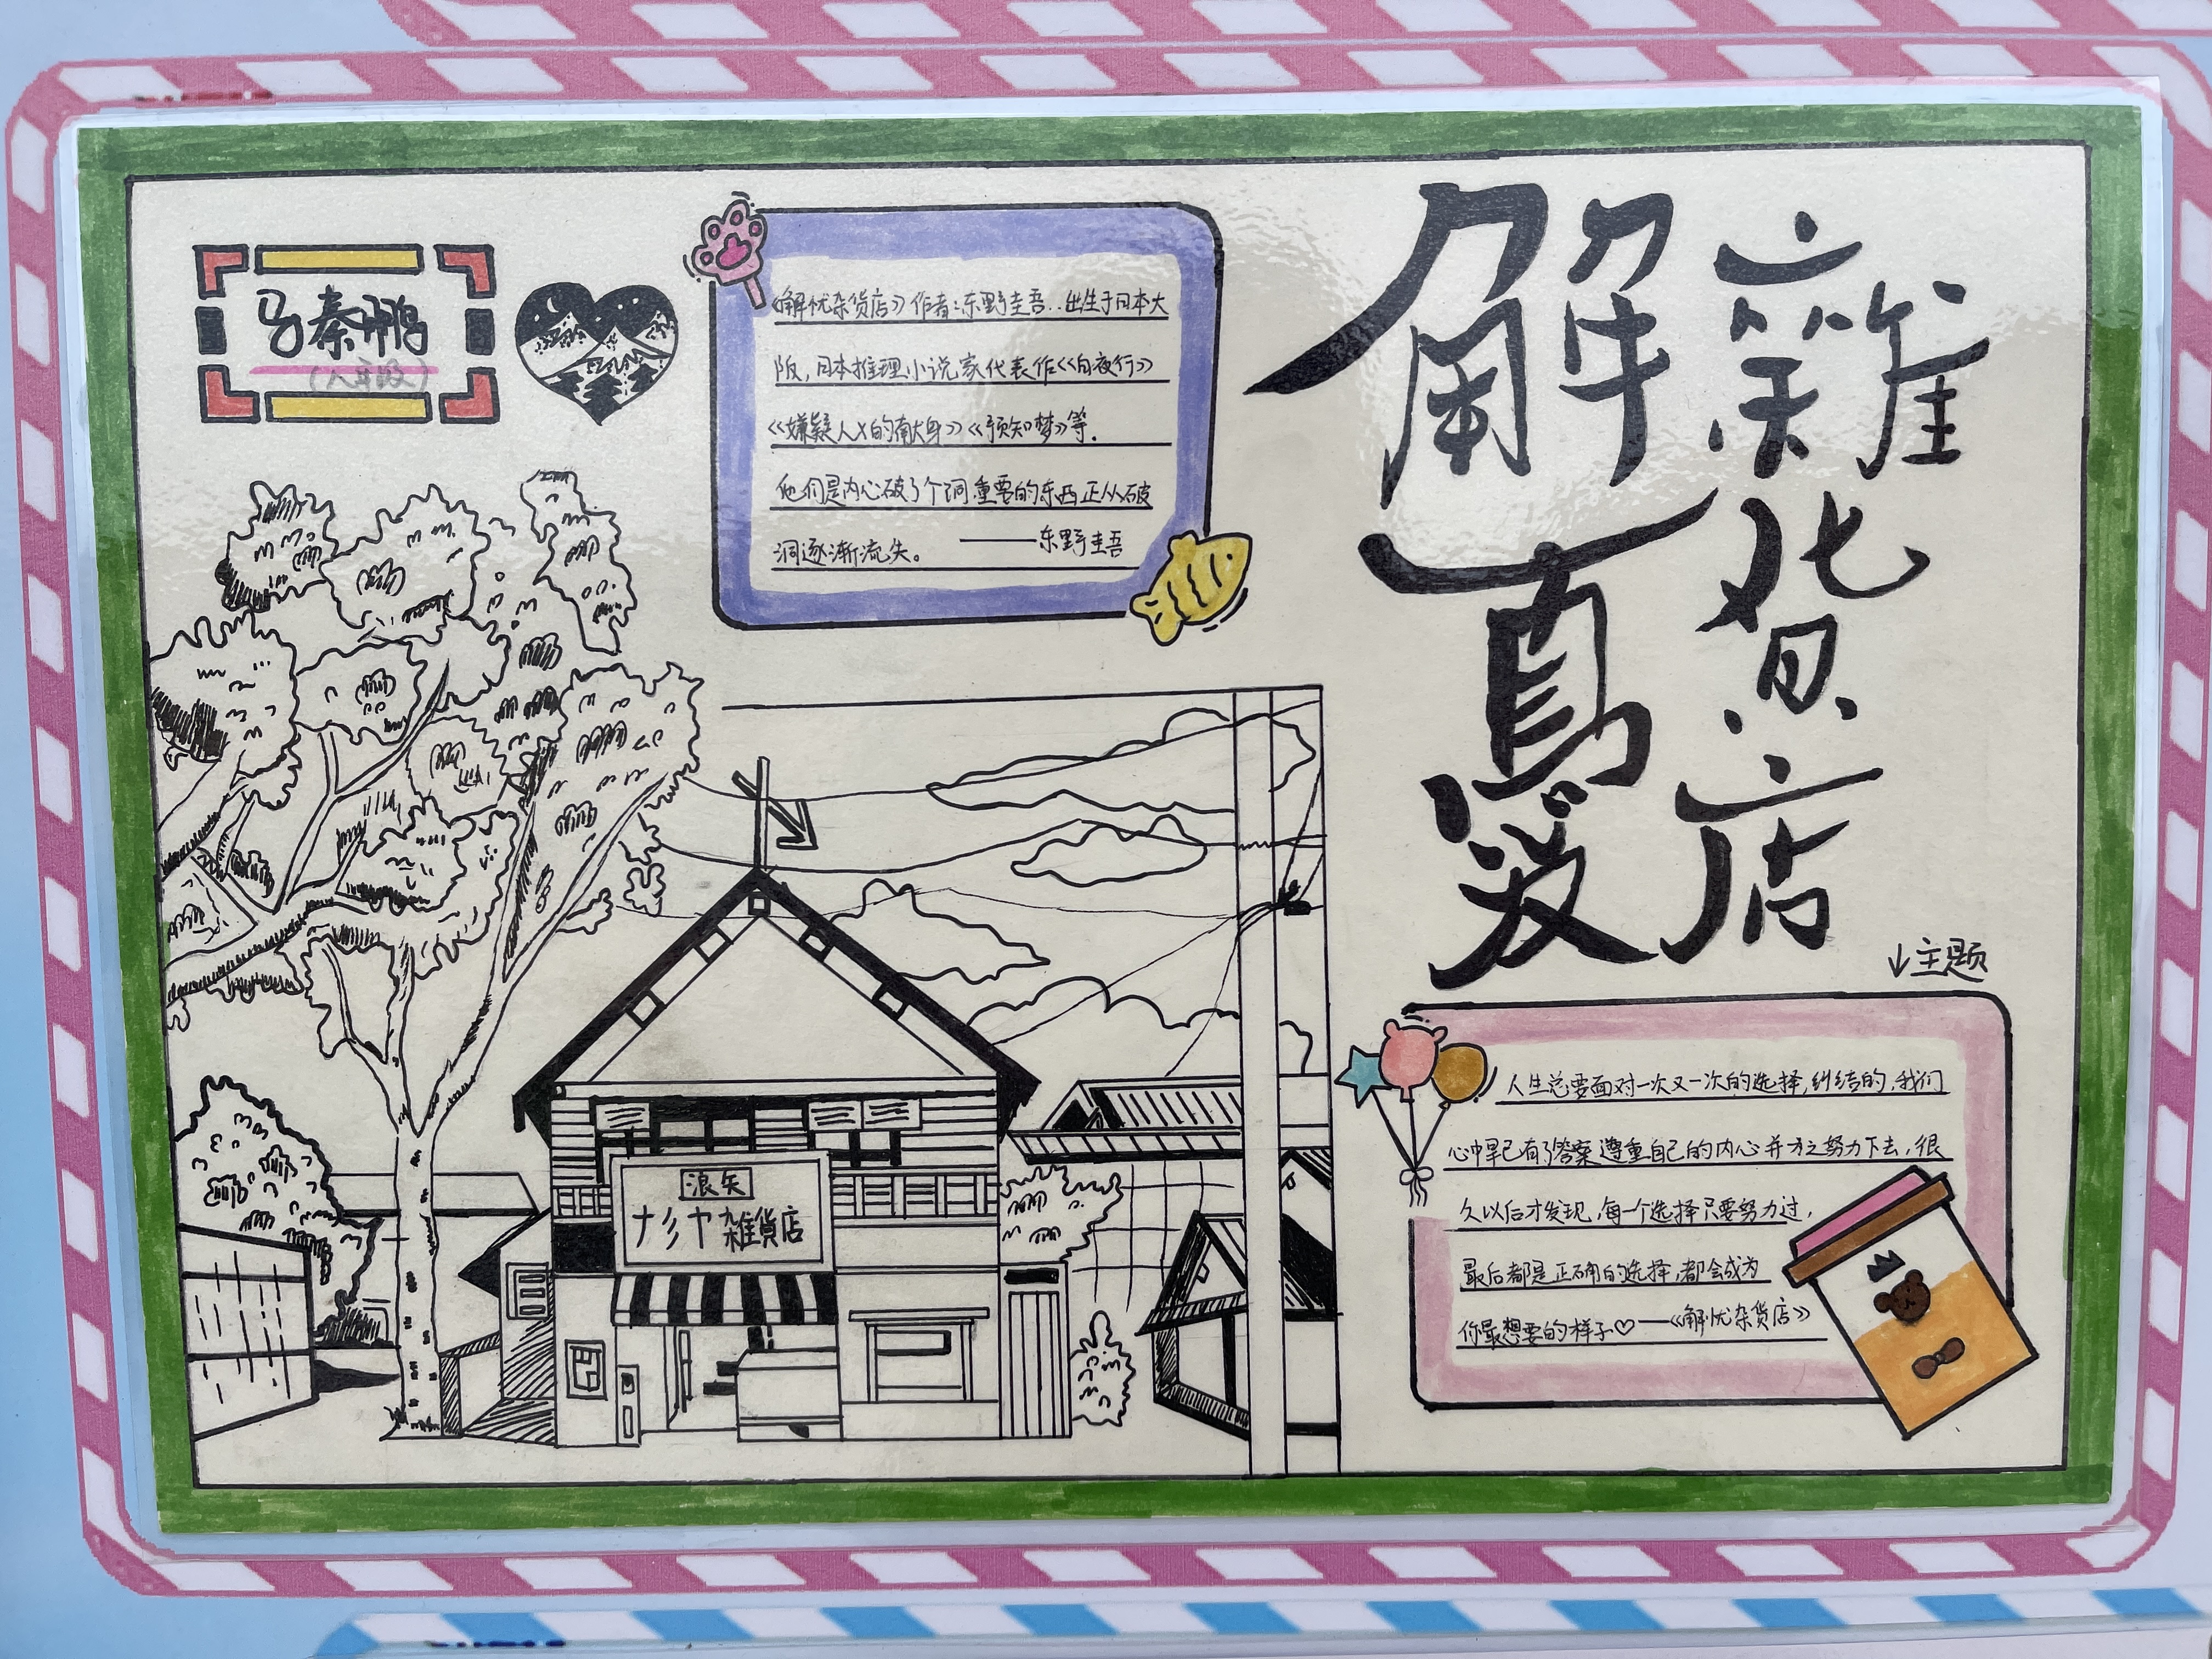 马秦鹏
(八年段)
《解忧杂货店》作者:东野圭吾..出生于日本大
阪,日本推理小说家代表作《白夜行》
《嫌疑人X的献身》《预知梦》等.
他们是内心破了个洞重要的东西正从破
洞逐渐流失。 ——东野圭吾
解憂
雜貨店
↓主题
人生总要面对一次又一次的选择,纠结的,我们
心中早已有了答案遵重自己的内心并为之努力下去,很
久以后才发现,每一个选择只要努力过,
最后都是正确的选择,都会成为
你最想要的样子♡—《解忧杂货店》
浪矢
ナミヤ雑貨店